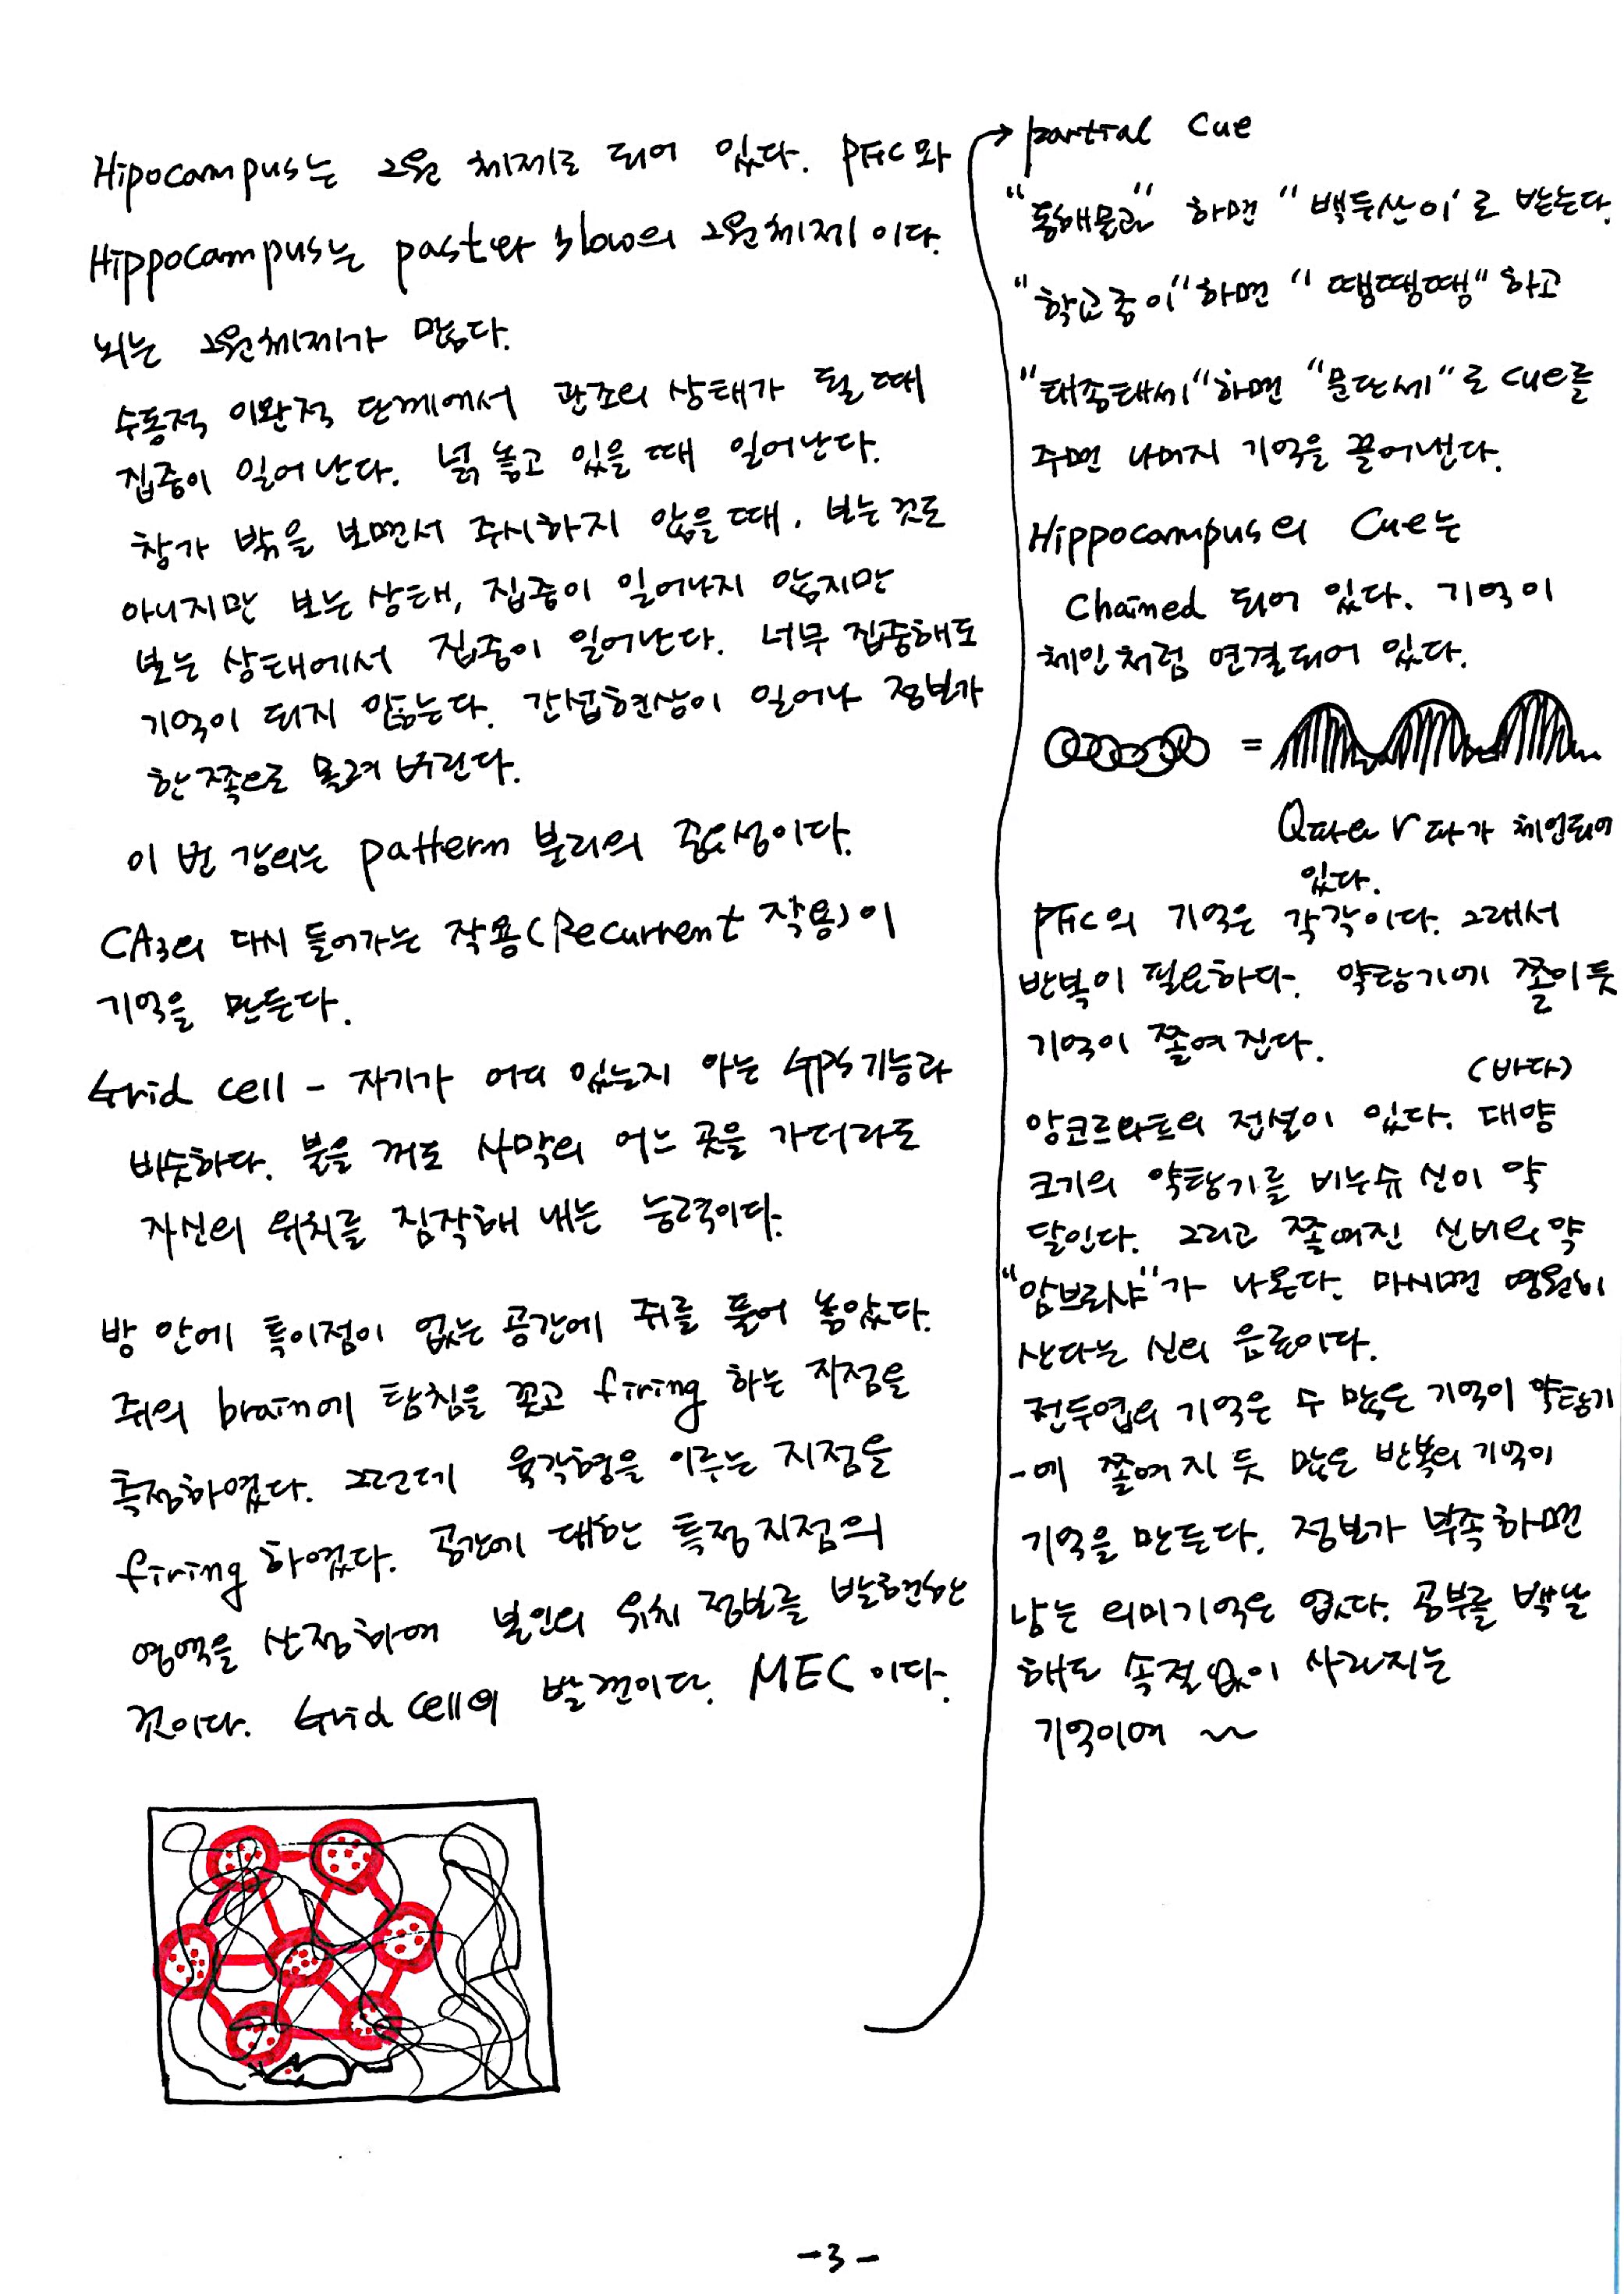 Hipocampus는 2원 체제로 되어 있다. PFC와
Hippocampus는 past와 slow의 2원체제이다.
뇌는 2원체제가 많다.
수동적 이완적 단계에서 관조의 상태가 될 때
집중이 일어난다. 넋 놓고 있을 때 일어난다.
창가 밖을 보면서 주시하지 않을 때, 보는 것도
아니지만 보는 상태, 집중이 일어나지 않지만
보는 상태에서 집중이 일어난다. 너무 집중해도
기억이 되지 않는다. 간섭현상이 일어나 정보가
한쪽으로 몰려 버린다.
이 번 강의는 pattern 분리의 중요성이다.
CA3의 다시 들어가는 작용(Recurrent 작용)이
기억을 만든다.
Grid cell - 자기가 어디 있는지 아는 GPS기능과
비슷하다. 불을 꺼도 사막의 어느 곳을 가더라도
자신의 위치를 짐작해 내는 능력이다.
방 안에 특이점이 없는 공간에 쥐를 풀어 놓았다.
쥐의 brain에 탐침을 꽂고 firing 하는 지점을
측정하였다. 그런데 육각형을 이루는 지점을
firing 하였다. 공간에 대한 특정지점의
영역을 산정하여 본인의 위치 정보를 발현하는
것이다. Grid cell의 발견이다. MEC이다.
partial cue
"동해물과" 하면 "백두산이"로 받는다.
"학교종이"하면 "땡땡땡"하고
"태종태세"하면 "문단세"로 cue를
주면 나머지 기억을 끌어낸다.
Hippocampus의 Cue는
Chained 되어 있다. 기억이
체인처럼 연결되어 있다.
=
Q파와 r파가 체인되어
있다.
PFC의 기억은 각각이다. 그래서
반복이 필요하다. 약탕기에 쫄이듯
기억이 쫄여 진다.
(바다)
앙코르와트의 전설이 있다. 대양
크기의 약탕기를 비누슈 신이 약
달인다. 그리고 쫄여진 신비의 약
"암브리샤"가 나온다. 마시면 영원히
산다는 신의 음료이다.
전두엽의 기억은 수 많은 기억이 약탕기
-에 쫄여지듯 많은 반복의 기억이
기억을 만든다. 정보가 부족하면
남는 의미기억은 없다. 공부를 백날
해도 속절없이 사라지는
기억이여 ~
-3-